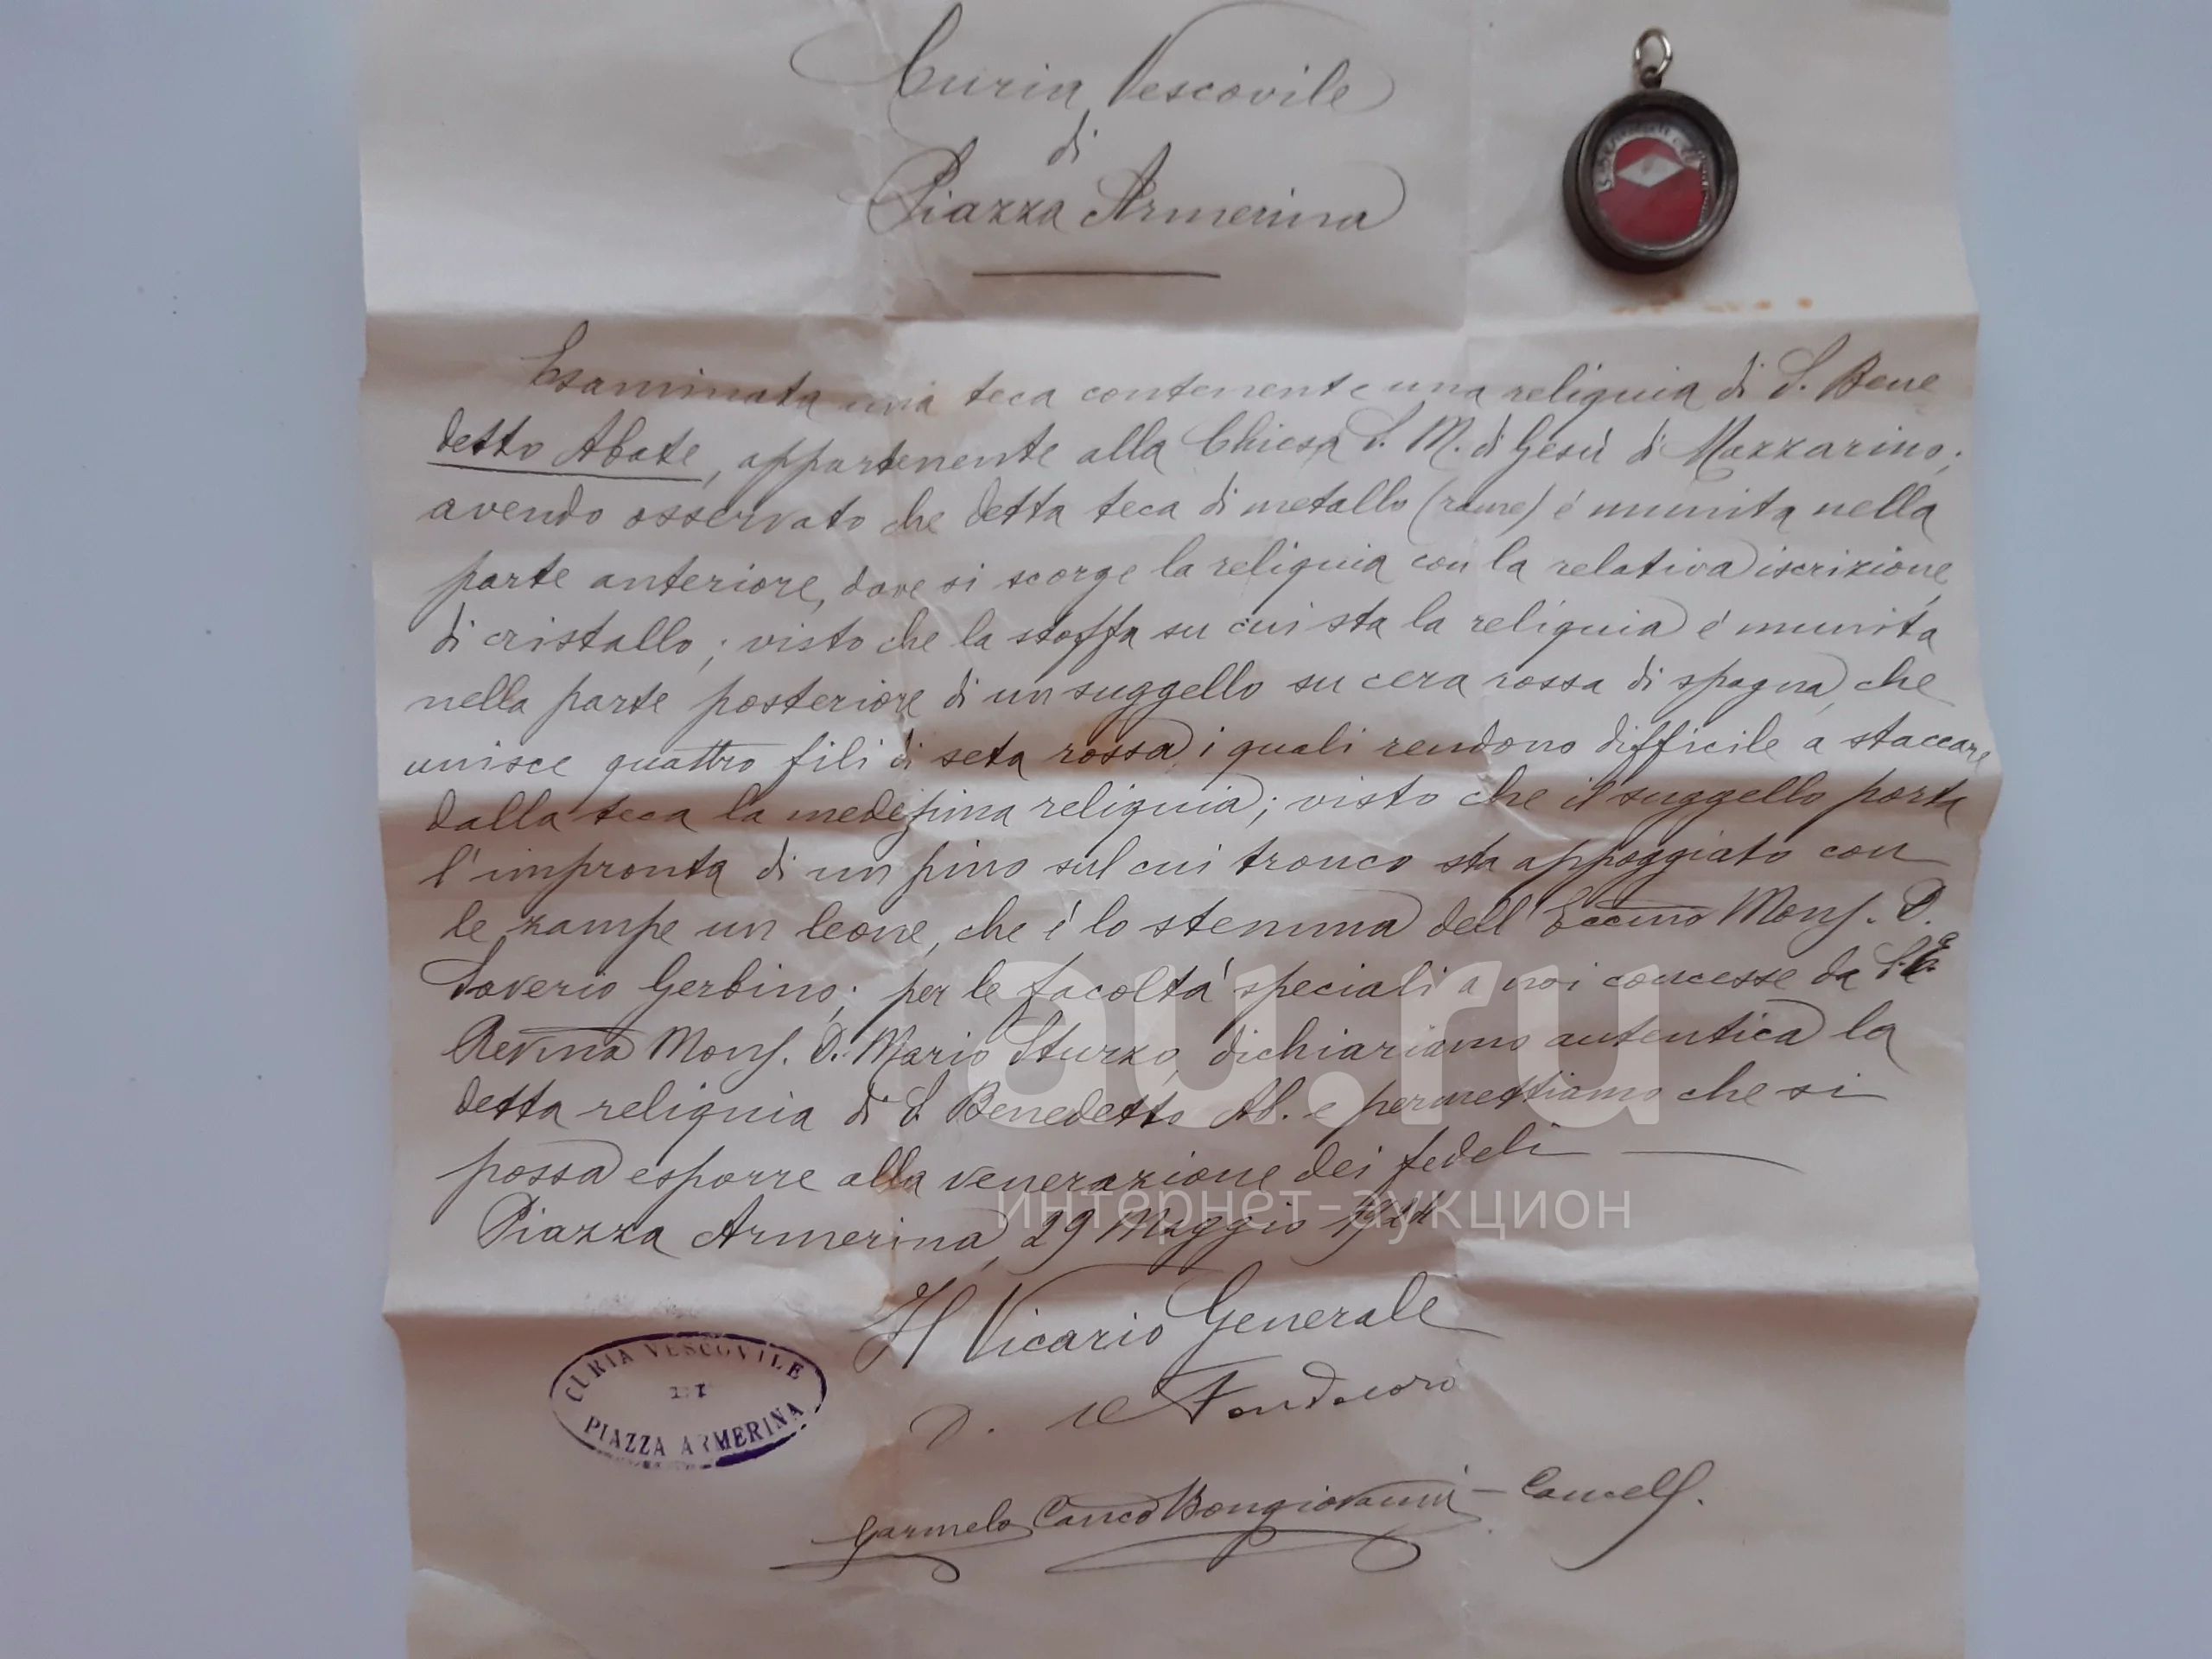 Curia Vescovile
di
Piazza Armerina
Esaminata una teca contenente una reliquia di S. Bene
detto Abate, appartenente alla Chiesa S. M. di Gesù di Mazzarino;
avendo osservato che detta teca di metallo (rame) é munita nella
parte anteriore, dove si scorge la reliquia con la relativa iscrizione,
di cristallo; visto che la stoffa su cui sta la reliquia é munita
nella parte posteriore di un suggello su cera rossa di spagna, che
unisce quattro fili di seta rossa, i quali rendono difficile a staccare
dalla teca la medesima reliquia; visto che il suggello porta
l'impronta di un pino sul cui tronco sta appoggiato con
le zampe un leone, che é lo stemma dell' Eccmo Mons. D.
Saverio Gerbino; per le facoltá speciali a noi concesse da S. E.
Revma Mons. D. Mario Sturzo, dichiariamo autentica la
detta reliquia di S. Benedetto Ab. e permettiamo che si
possa esporre alla venerazione dei fedeli
Piazza Armerina, 29 Maggio
Il Vicario Generale
CURIA VESCOVILE
DI
PIAZZA ARMERINA
Carmelo Canco Bongiovanni - Cancell.
au.ru
интернет-аукцион